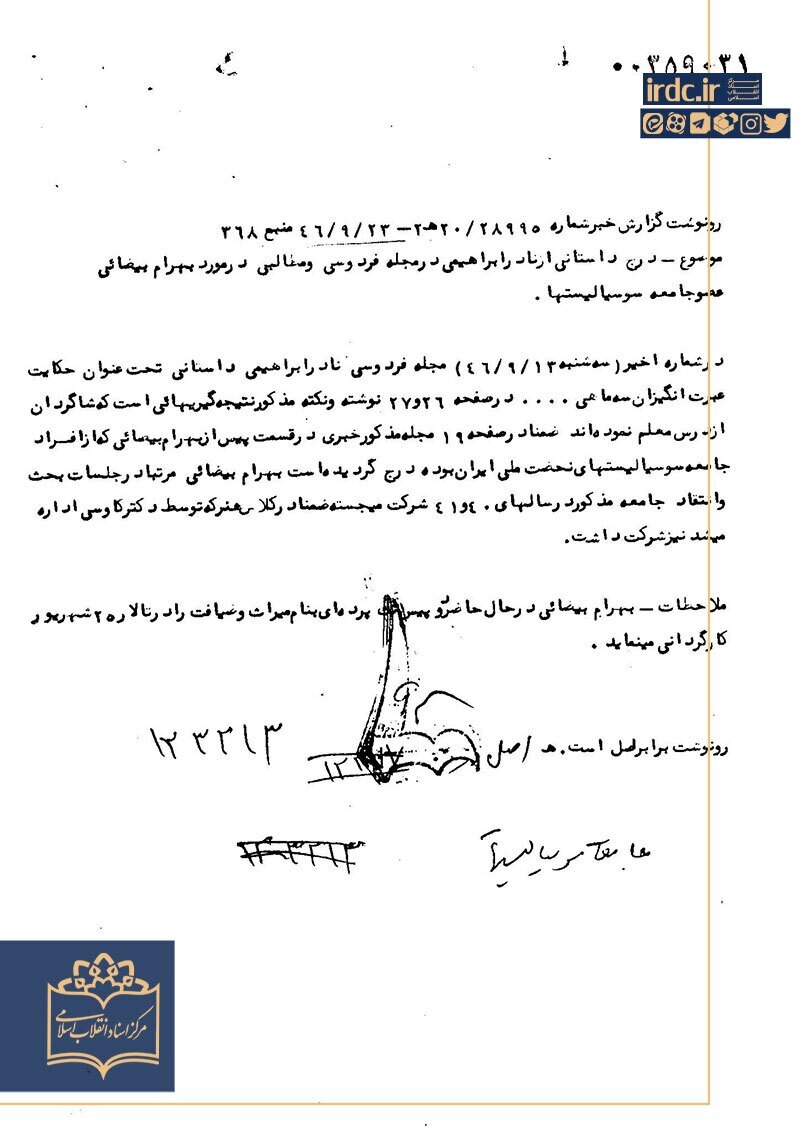 ۰۰۳۵۹۰۳۱
irdc.ir
مرکز اسناد انقلاب اسلامی
رونوشت گزارش خبر شماره ۲۰/۲۸۹۹۵ه‍۲ – ۴۶/۹/۲۳ منبع ۳۶۸
موضوع – درج داستانی از نادر ابراهیمی در مجله فردوسی ومطالبی درمورد بهرام بیضائی
عضو جامعه سوسیالیستها .
در شماره اخیر (سه شنبه ۴۶/۹/۱۳) مجله فردوسی نادر ابراهیمی داستانی تحت عنوان حکایت
عبرت انگیزان سه ماهی .... در صفحه ۲۶و۲۷ نوشته ونکته مذکور نتیجه گیریهائی است که شاگردان
از درس معلم نموده اند ضمنا در صفحه ۱۹ مجله مذکور خبری در قسمت پیس از بهرام بیضائی که از افراد
جامعه سوسیالیستهای نهضت ملی ایران بوده درج گردیده است بهرام بیضائی مرتبا در جلسات بحث
وانتقاد جامعه مذکور در سالهای ۴۰و۴۱ شرکت میجسته ضمنا در کلاس هنر که توسط دکتر کاوسی اداره
میشد نیز شرکت داشت.
ملاحظات – بهرام بیضائی در حال حاضر دو پیس پرده ای بنام میراث وضیافت را در تالار ۲۵ شهریور
کارگردانی مینماید .
رونوشت برابر اصل است. ه‍ اصل
۱۲۳۲۱۳
جامعه سوسیالیستها
مرکز اسناد انقلاب اسلامی